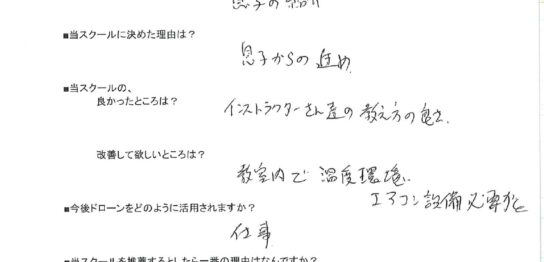 息子の紹介
■当スクールに決めた理由は？
息子からの進め
■当スクールの、
良かったところは？
インストラクターさん達の教え方の良さ.
改善して欲しいところは？
教室内で温度環境.
エアコン設備必要かと
■今後ドローンをどのように活用されますか？
仕事
■当スクールを推薦するとしたら一番の理由はなんですか？